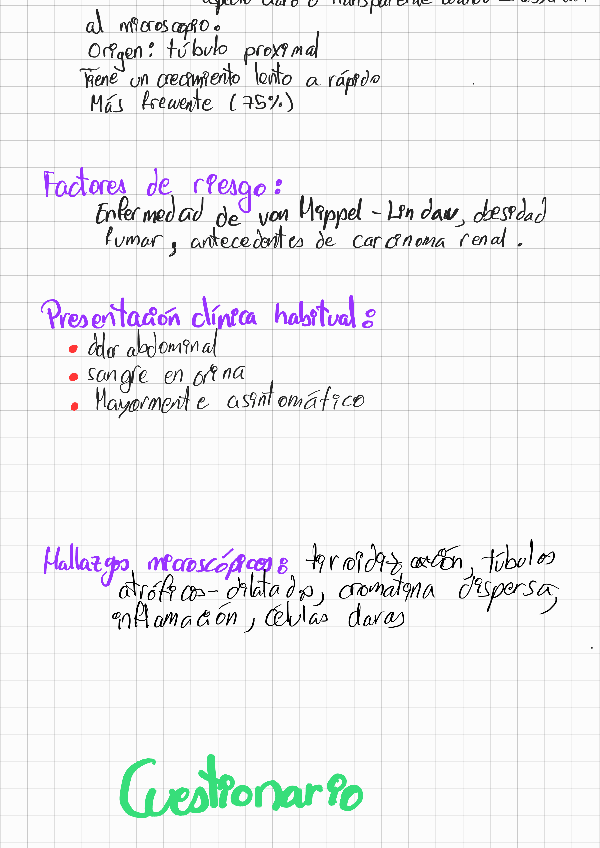 aspecto claro o transparente
al microscopio.
Origen: túbulo proximal
Tiene un crecimiento lento a rápido
Más frecuente (75%)
Factores de riesgo:
Enfermedad de von Hippel-Lindau, obesidad
fumar, antecedentes de carcinoma renal.
Presentación clínica habitual:
• dolor abdominal
• sangre en orina
• Mayormente asintomático
Hallazgos microscópicos: tiroidización, túbulos
atróficos-dilatados, cromatina dispersa,
inflamación, células claras
Cuestionario